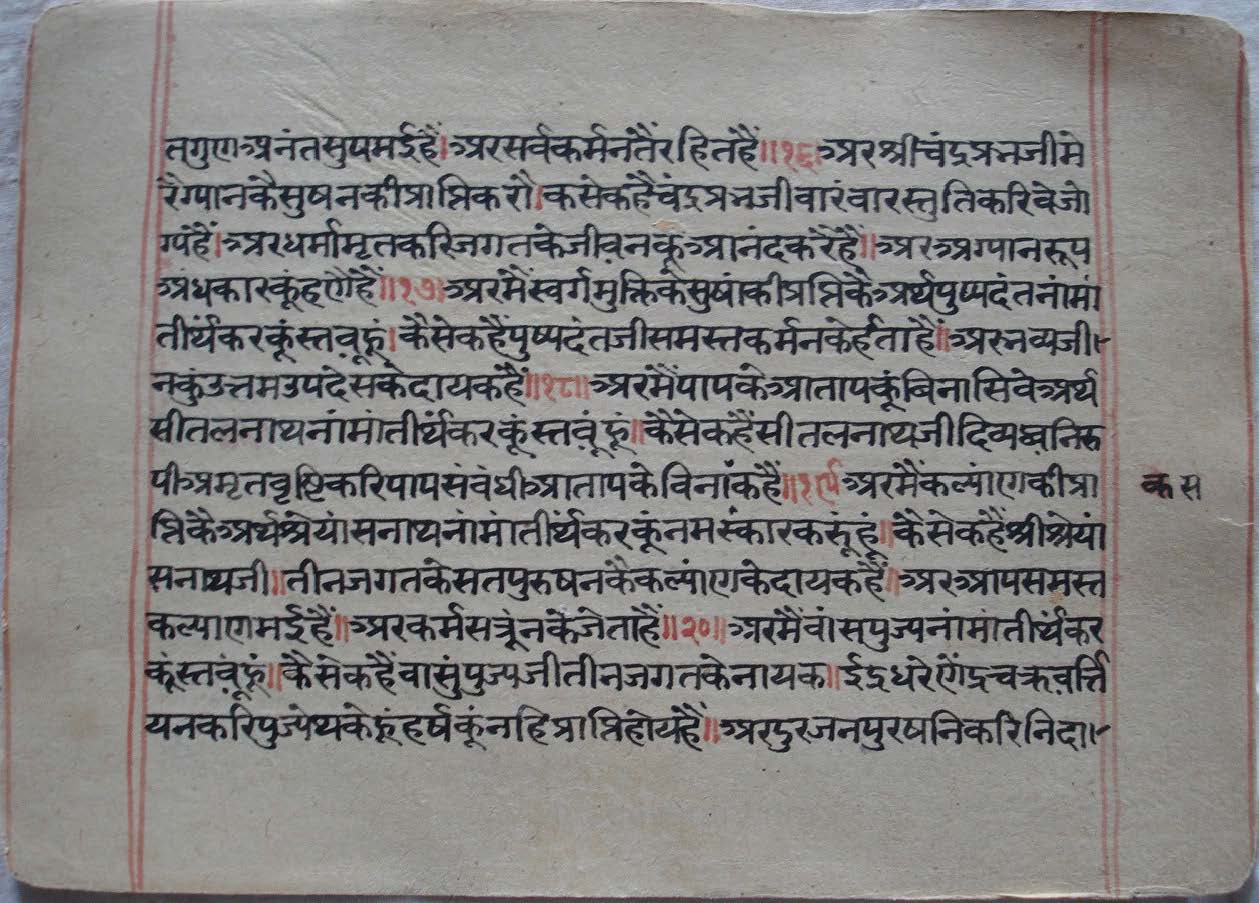 तगुणअनंतसुषमईहैं।अरसर्वकर्मनतैंरहितहैं॥१६॥अरश्रीचंद्रप्रभजीमे
रैग्यानकैसुषनकीप्राप्तिकरौ।कैसेकहैचंद्रप्रभजीवारंवारस्तुतिकरिवेजो
ग्यहैं।अरधर्मामृतकरिजगतकेजीवनकूंआनंदकरैहैं॥अरअग्यानरूप
अंधकारकूंहणैहैं॥१७॥अरमैंस्वर्गमुक्तिकेसुषांकीप्राप्तिकैअर्थपुष्पदंतनांमां
तीर्थंकरकूंस्तवूहूं।कैसेकहैंपुष्पदंतजीसमस्तकर्मनकेहंर्ताहैं॥अरभव्यजी।
नकुंउत्तमउपदेसकेदायकहैं॥१८॥अरमैंपापकेआतापकूंबिनासिवेअर्थ
सीतलनाथनांमांतीर्थंकरकूंस्तवूंहूं।कैसेकहैंसीतलनाथजीदिव्यध्वनिरु
पीअमृतवृष्टिकरिपापसंबंधीआतापकेविनांकहैं॥१९॥अरमैंकल्यांणकीप्रा
कस
प्तिकैअर्थश्रेयांसनाथनांमांतीर्थंकरकूंनमस्कारकरूंहूं॥कैसेकहैंश्रीश्रेयां
सनाथजी॥तीनजगतकेसतपुरुषनकैकल्यांणकेदायकहैं॥अरआपसमस्त
कल्याणमईहैं॥अरकर्मसत्रूंनकेजेताहैं॥२०॥अरमैंवांसपुज्यनांमांतीर्थंकर
कूंस्तवूंहूं॥कैसेकहैंवासुंपुज्यजीतीनजगतकेनायक॥ईंद्रधरेणेंद्रचक्रवर्त्ति
यनकरिपुज्येथकेहूंहर्षकूंनहिप्राप्तिहोयहैं॥अरदुरजनपुरषनिकरिनिदा।